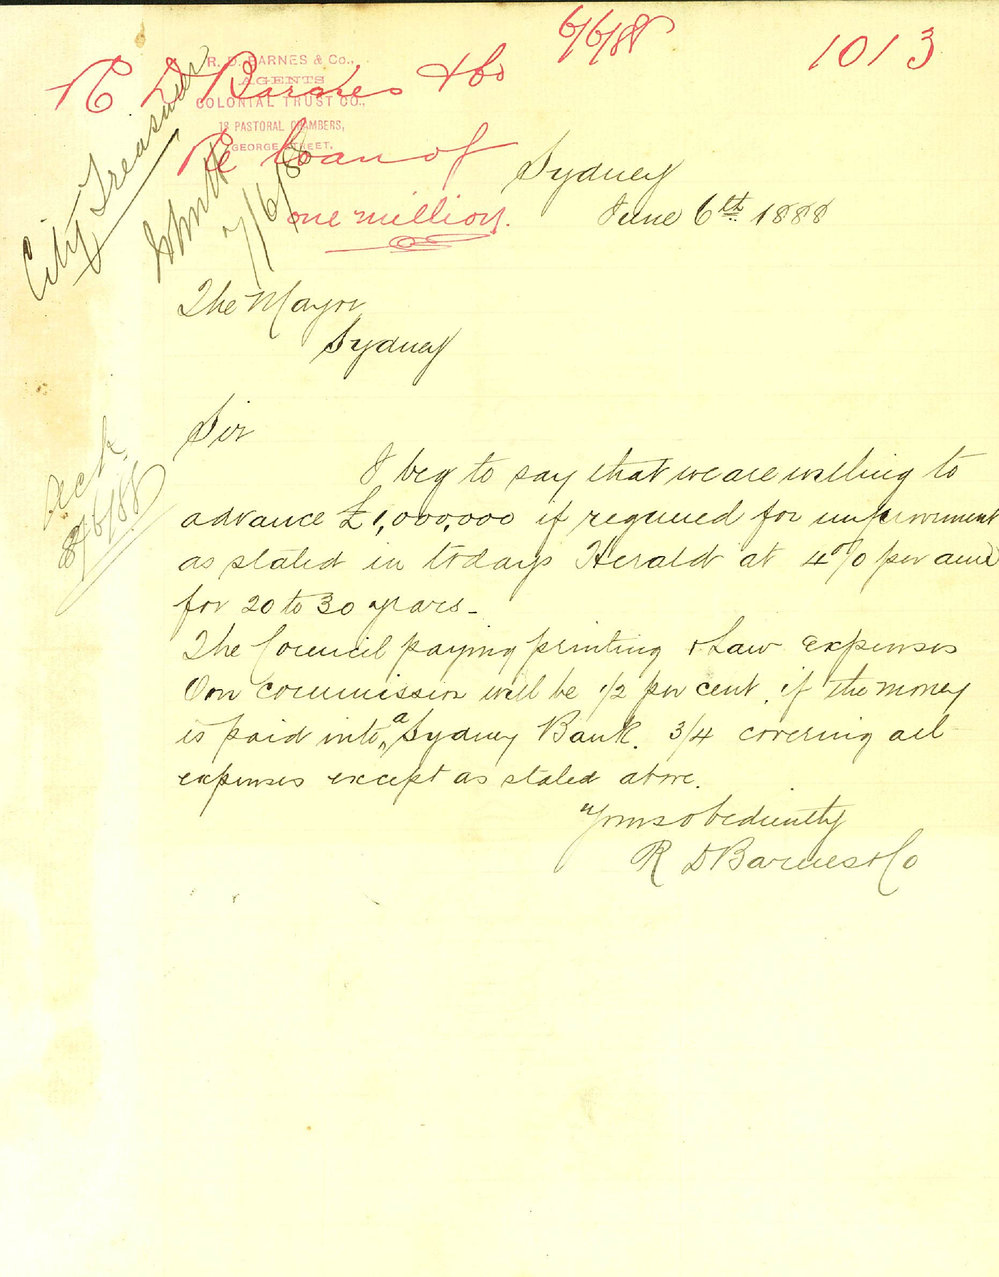 6/6/88
1013
R. D. BARNES & Co.,
AGENTS
COLONIAL TRUST CO.,
18 PASTORAL CHAMBERS,
GEORGE STREET.
R D Barnes & Co
Re Loan of
one million.
City Treasurer
7/6/88
Sydney
June 6th 1888
The Mayor
Sydney
Ack
8/6/88
Sir
I beg to say that we are willing to
advance £1,000,000 if required for improvement
as stated in todays Herald at 4% per ann
for 20 to 30 years -
The Council paying printing & Law expenses
Our commission will be 1/2 per cent, if the money
is paid into a Sydney Bank. 3/4 covering all
expenses except as stated above.
Yours obediently
R D Barnes & Co